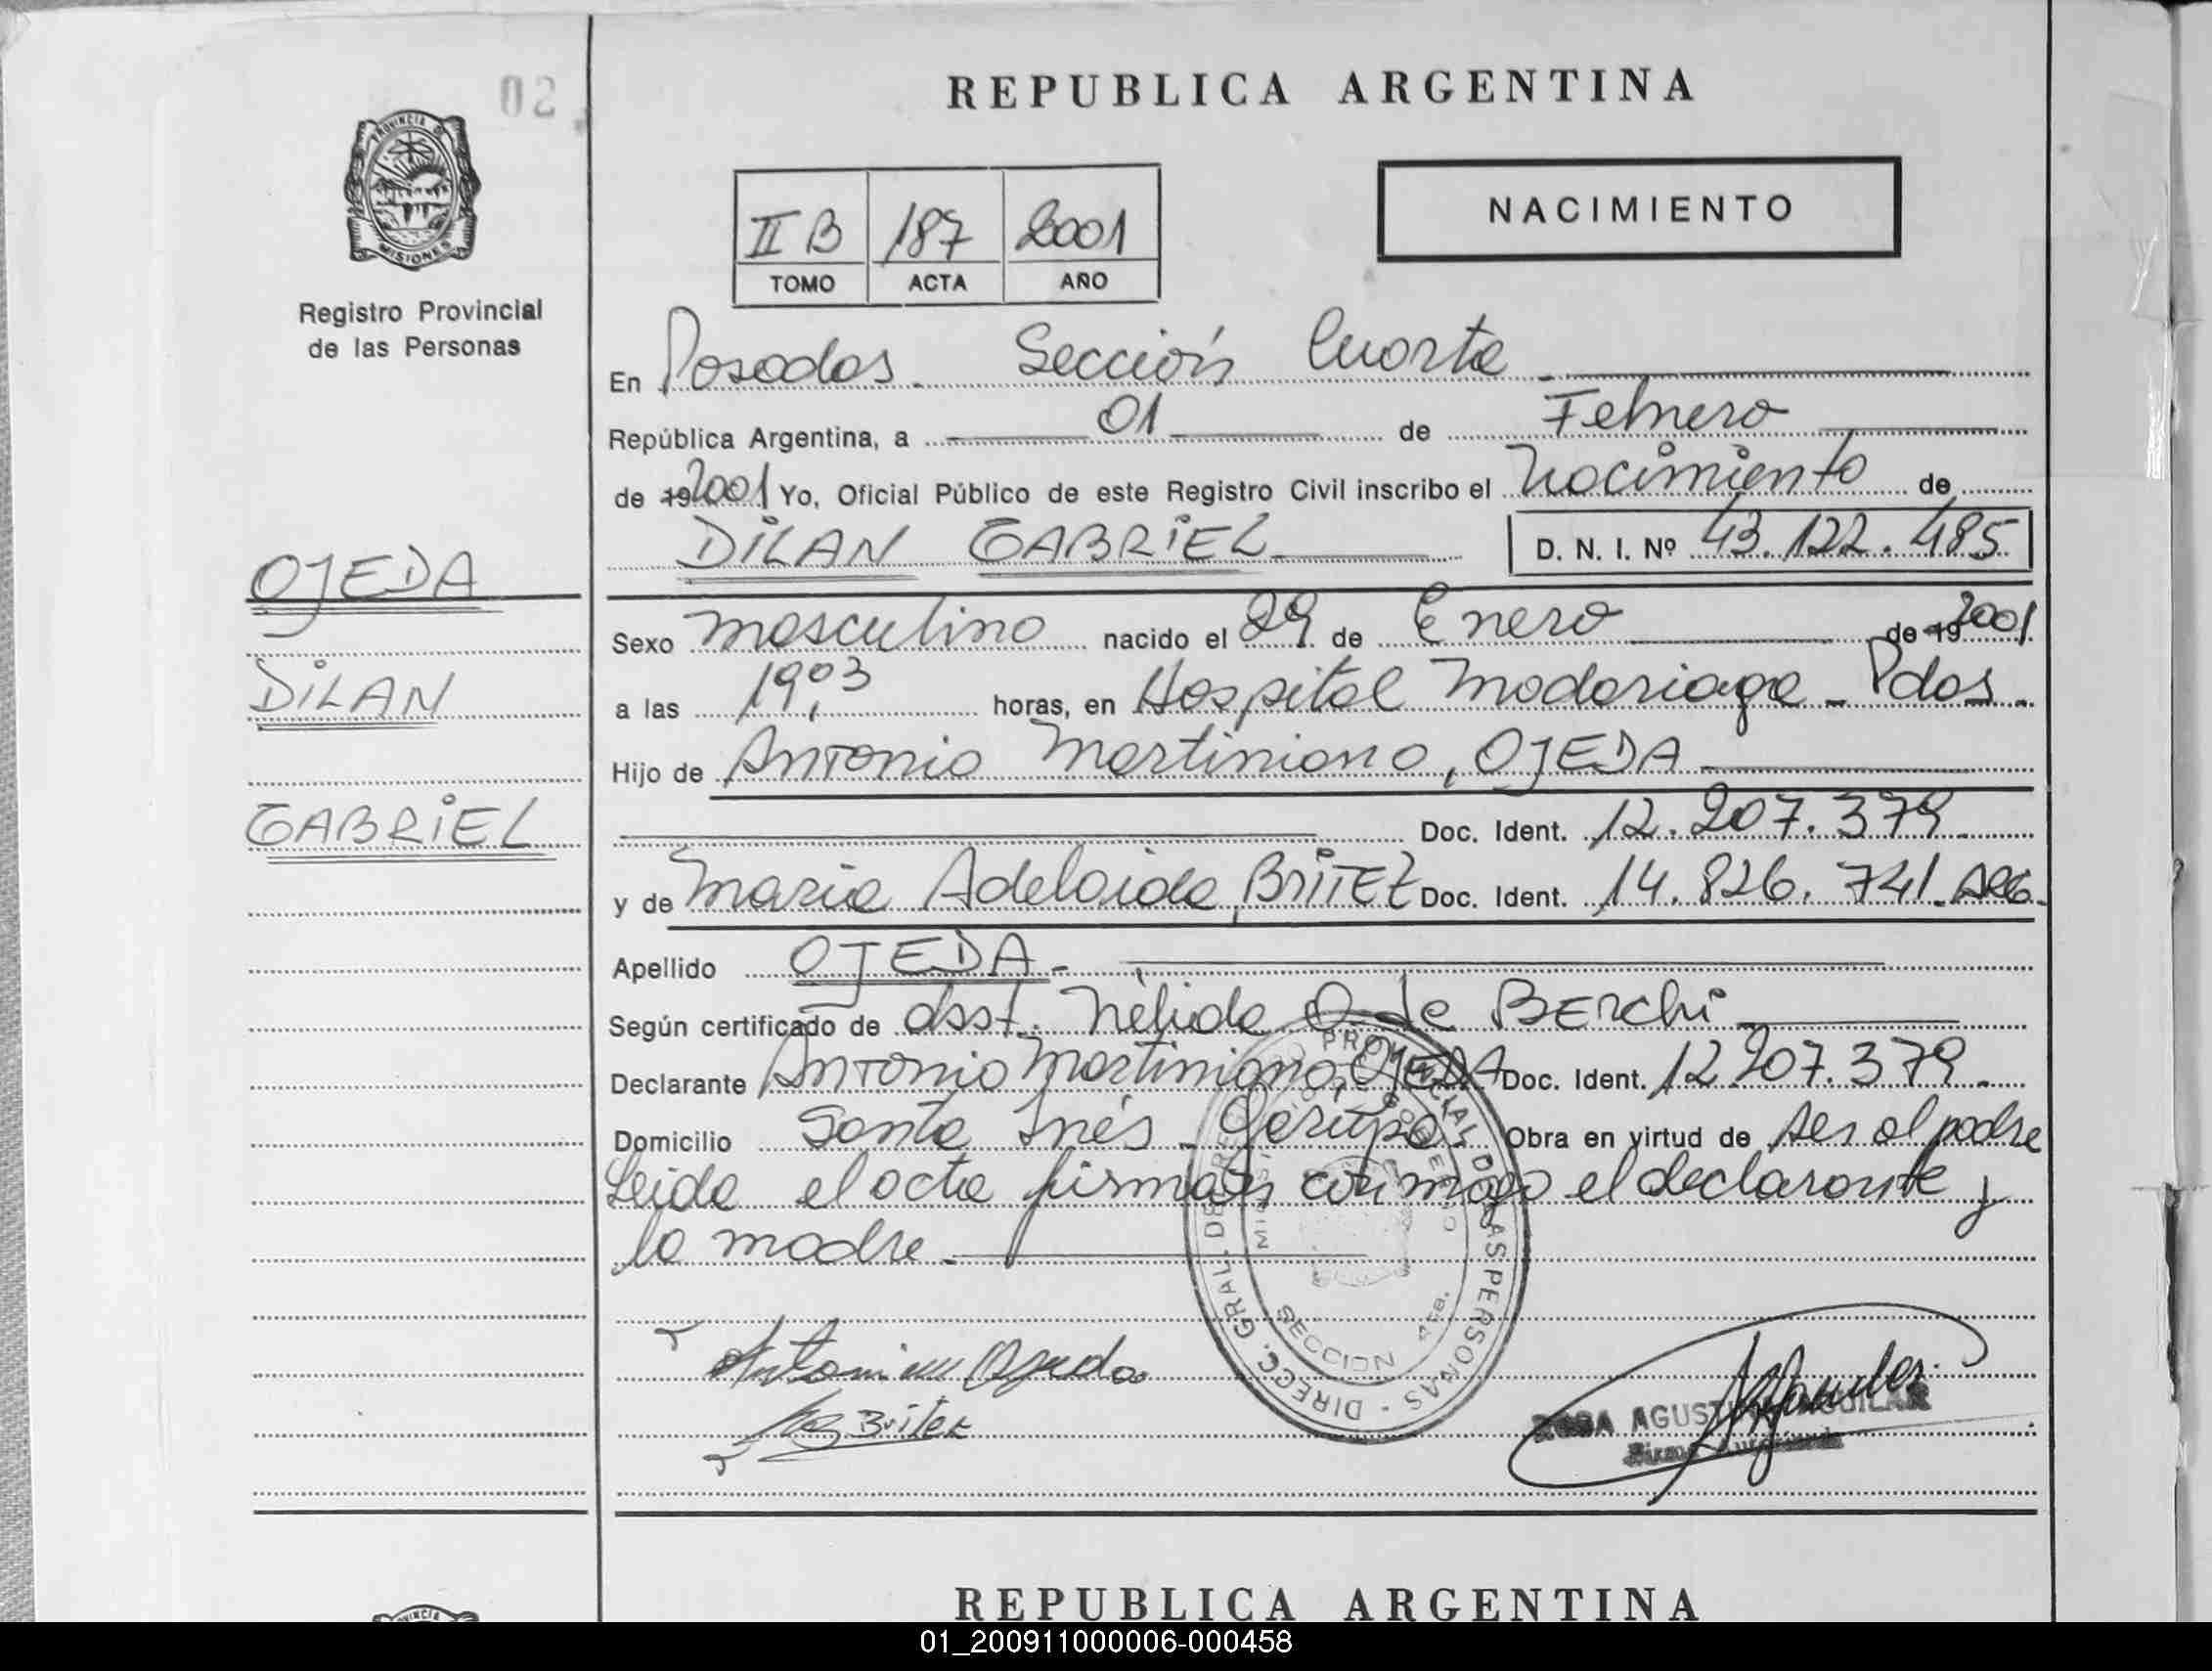 02
REPUBLICA ARGENTINA
PROVINCIA DE
MISIONES
II B 187 2001
TOMO ACTA AÑO
NACIMIENTO
Registro Provincial
de las Personas
En Posadas. Sección Cuarta
República Argentina, a 01 de Febrero
de 19 2001 Yo, Oficial Público de este Registro Civil inscribo el Nacimiento de
DiLAN GABRiEL D. N. I. Nº 43.122.485
OJEDA
DiLAN
GABRiEL
Sexo masculino nacido el 29 de Enero de 19 2001
a las 19,03 horas, en Hospital Madariaga - Pdas.
Hijo de Antonio Martiniano, OJEDA
Doc. Ident. 12.207.379
y de Maria Adelaida, BRITEZ Doc. Ident. 14.826.741. ARG.
Apellido OJEDA.
Según certificado de obst. Nélida O. de BErchi
Declarante Antonio Martiniano, OJEDA Doc. Ident. 12.207.379.
Domicilio Santa Inés - Garupá Obra en virtud de ser el padre
Leida el acta firman conmigo el declarante y
la madre.
Antonio Ojeda
Britez
DIRECC. GRAL. DE REGISTRO PROVINCIAL DE LAS PERSONAS
SECCION 4ta.
ROSA AGUSTINA AGUILAR
REPUBLICA ARGENTINA
01_200911000006-000458